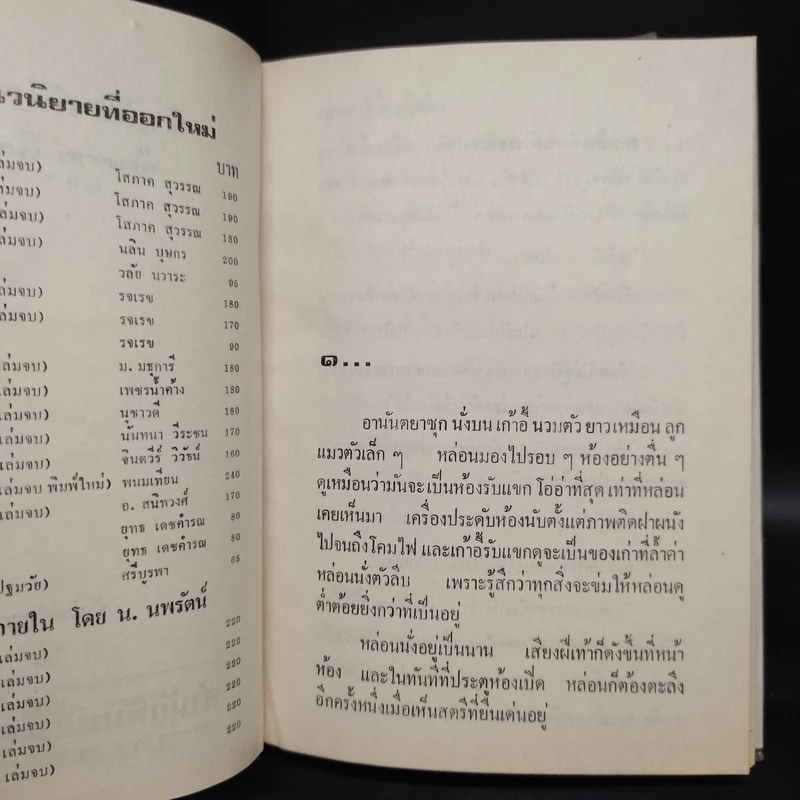 นวนิยายที่ออกใหม่
บาท
เล่มจบ) โสภาค สุวรรณ 190
เล่มจบ) โสภาค สุวรรณ 190
เล่มจบ) โสภาค สุวรรณ 180
เล่มจบ) นลิน บุษกร 200
วลัย นวาระ 95
เล่มจบ) รจเรข 180
เล่มจบ) รจเรข 170
รจเรข 90
เล่มจบ) ม. มธุการี 180
เล่มจบ) เพชรน้ำค้าง 180
เล่มจบ) นุชาวดี 180
เล่มจบ) นันทนา วีระชน 170
เล่มจบ) จินตวีร์ วิวัธน์ 160
เล่มจบ พิมพ์ใหม่) พนมเทียน 240
เล่มจบ) อ. สนิทวงศ์ 170
ยุทธ เดชคำรณ 80
ยุทธ เดชคำรณ 80
ปฐมวัย) ศรีบูรพา 65
ภายใน โดย น. นพรัตน์
เล่มจบ) 220
เล่มจบ) 220
เล่มจบ) 220
เล่มจบ) 220
เล่มจบ) 220
เล่มจบ)
๑...
อานันตยาซุก นั่งบน เก้าอี้ นวมตัว ยาวเหมือน ลูก
แมวตัวเล็ก ๆ หล่อนมองไปรอบ ๆ ห้องอย่างตื่น ๆ
ดูเหมือนว่ามันจะ เป็นห้องรับแขก โอ่อ่าที่สุด เท่าที่หล่อน
เคยเห็นมา เครื่องประดับห้องนับตั้งแต่ภาพติดฝาผนัง
ไปจนถึงโคมไฟ และเก้าอี้รับแขกดูจะเป็นของเก่าที่ล้ำค่า
หล่อนนั่งตัวลีบ เพราะรู้สึกว่าทุกสิ่งจะข่มให้หล่อนดู
ต่ำต้อยยิ่งกว่าที่เป็นอยู่
หล่อนนั่งอยู่เป็นนาน เสียงฝีเท้าก็ดังขึ้นที่หน้า
ห้อง และในทันทีที่ประตูห้องเปิด หล่อนก็ต้องตะลึง
อีกครั้งหนึ่งเมื่อเห็นสตรีที่ยืนเด่นอยู่